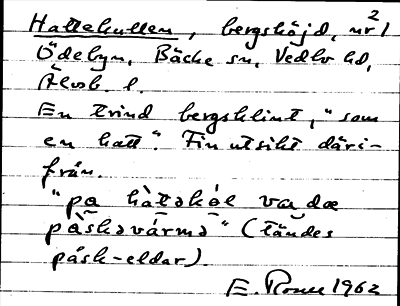 Hattekullen, bergshöjd, nr 1 2
Ödebyn, Bäcke sn, Vedbo hd,
Älvsb. l.
En trind bergsklint, "som
en hatt". Fin utsikt däri-
från.
"pa hàtəkəl va dæ
påskəvármə" (tändes
påsk-eldar).
E. 1962